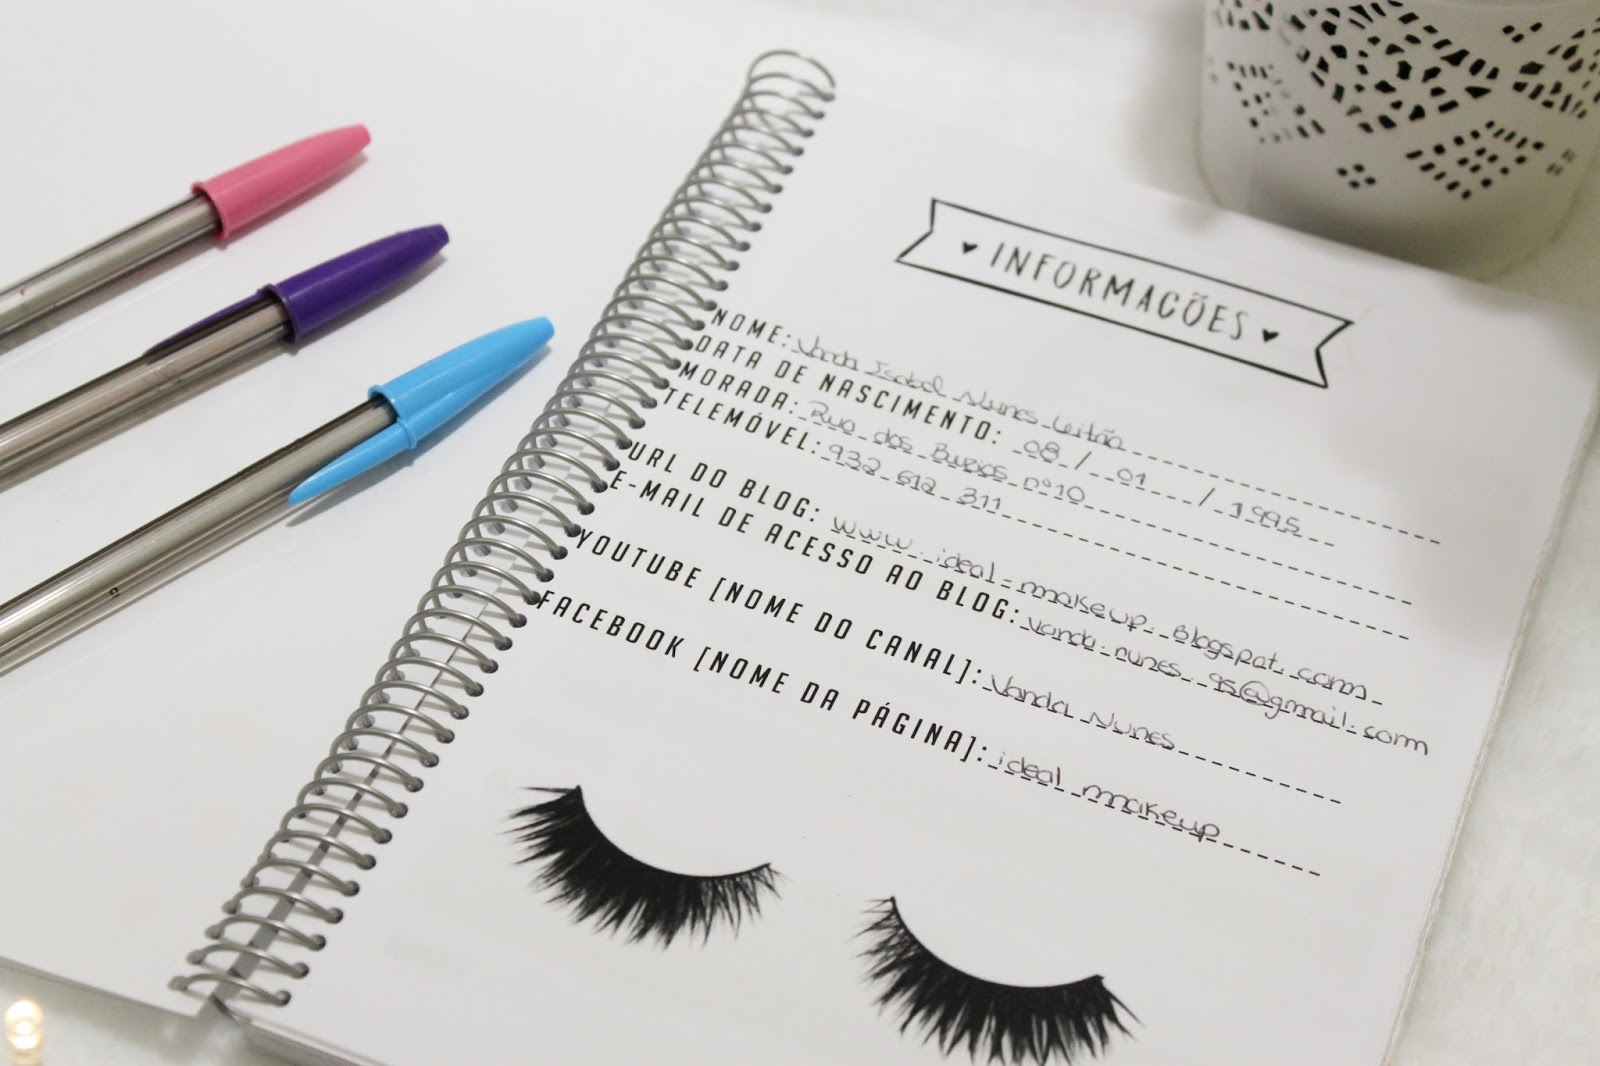 INFORMAÇÕES
NOME: Vanda Isabel Nunes Leitão
DATA DE NASCIMENTO: 08 / 01 / 1995
MORADA: Rua dos Buzios nº10
TELEMÓVEL: 932 612 311
URL DO BLOG: www.ideal-makeup.blogspot.com
E-MAIL DE ACESSO AO BLOG: vanda.nunes.95@gmail.com
YOUTUBE [NOME DO CANAL]: Vanda Nunes
FACEBOOK [NOME DA PÁGINA]: ideal makeup